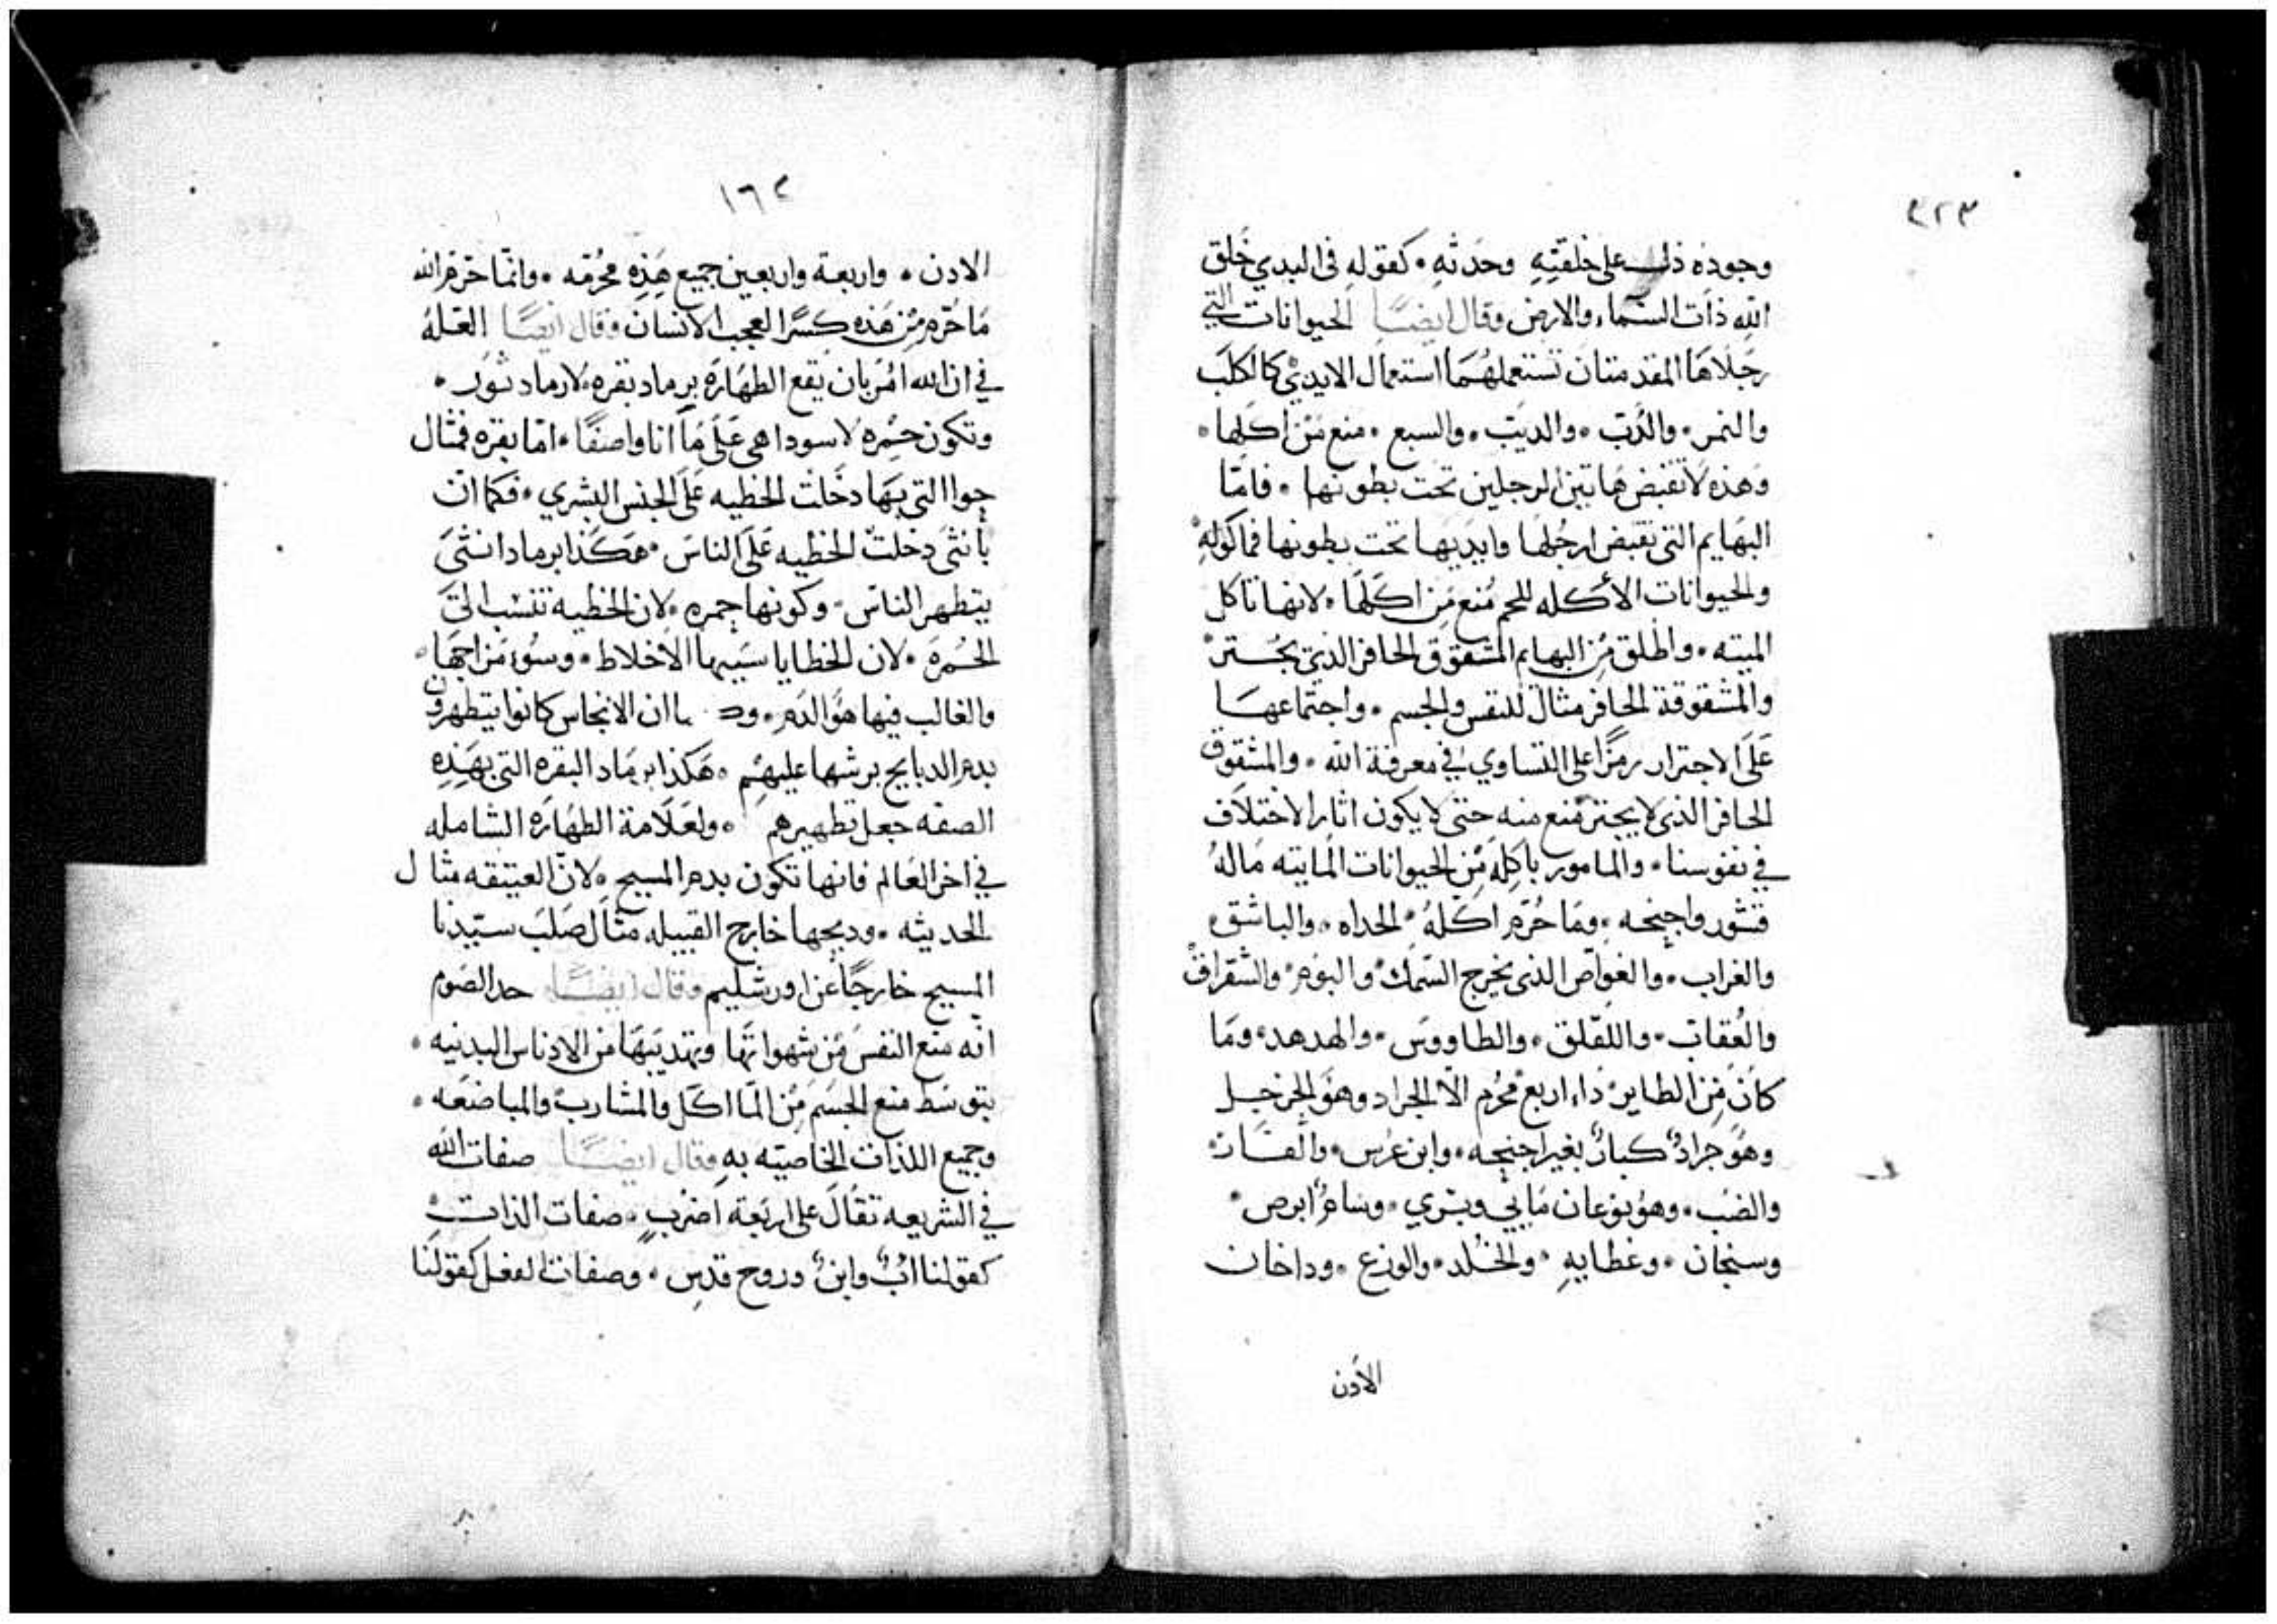 ٣٢٣
وجوده ذلك على خلقتِهِ وحدثه . كقوله فى البدي خلق
الله ذات السماء والارض وقال ايضًا الحيوانات التي
رجلاها المقدمتان تستعملهما استعمال الايدي كالكلب
والنمر . والدب . والديب . والسبع . منع من اكلها .
وهذه لا تقبض هاتين الرجلين تحت بطونها . فامّا
البهايم التي تقبض ارجلها وايديها تحت بطونها فماكوله
والحيوانات الأكله للحم مُنع من اكلها . لانها تاكل
الميته . واطلق من البهايم المشقوق الحافر الذي يجتر
والمشقوقة الحافر مثال للنفس والجسم . واجتماعها
على الاجترار رمزًا على التساوي في معرفة الله . والمشقوق
الحافر الذي لا يجتر مُنع منه حتى لا يكون اثار الاختلاف
في نفوسنا . والمامور باكله من الحيوانات المايته ماله
قشور واجنحه . وما حُرّم اكله . الحداه . والباشق .
والغراب . والغواص الذي يخرج السمك والبوم والشقراق
والعقاب . واللقلق . والطاووس . والهدهد . وما
كان من الطاير ذا اربع محرم الّا الجراد وهو الجرجل
وهو جرادٌ كبارٌ بغير اجنحه . وابن عرس . والفار
والضب . وهو نوعان مايي وبري . وسام ابرص
وسنجان . وعظايه . والخلد . والوزع . وداخان
الأدن
١٦٢
الادن . واربعة واربعين جميع هذِه محرّمه . وانمّا حرّم الله
ما حُرّم من هذه كسرًا لعجب الانسان وقال ايضًا العلّه
في ان الله امر بان يقع الطهاره برماد بقره لا رماد ثور .
وتكون حمره لا سودا هي على ما انا واصفًا . امّا بقره فمثال
حوا التي بها دخلت الخطيه على الجنس البشري . فكما ان
بأنثى دخلت الخطيه على الناس . هكذا برماد انثى
يتطهر الناس . وكونها حمره . لان الخطيه تنسب الى
الحُمرة . لان الخطايا سببها الاخلاط . وسوء مزاجها .
والغالب فيها هو الدم . ان الانجاس كانوا يتطهرون
بدم الدبايح برشها عليهم . هكذا برماد البقره التي بهذِه
الصفه جعل تطهيرهم . ولعلامة الطهاره الشامله
في اخر العالم فانها تكون بدم المسيح . لان العتيقه مثال
الحديثه . ودبحها خارج القبيله مثال صلب سيّدنا
المسيح خارجًا عن اورشليم وقال ايضًا حد الصوم
انّه منع النفس من شهواتها وتهديبها من الادناس البدنيه .
بتوسّط منع الجسم من الماكل والمشارب والمباضعه .
وجميع اللذات الخاصيّه به وقال ايضًا صفات الله
في الشريعه تقال على اربعة اضرب . صفات الذات
كقولنا ابٌ وابنٌ وروح قدس . وصفات الفعل كقولنا